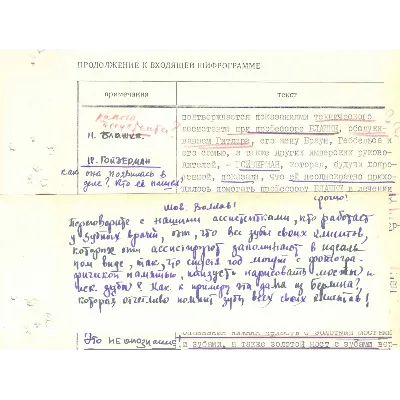 ПРОДОЛЖЕНИЕ К ВХОДЯЩЕЙ ШИФРОГРАММЕ
примечания
текст
Н. Блашке
К. Гойзерман
как она появилась в
деле? Кто её нашел?
подтверждается показаниями технического
ассистента при профессоре БЛАШКИ, обслужи-
вавшем Гитлера, его жену Браун, Геббельса и
его семью, а также других имперских руково-
дителей, - ГОЙЗЕРМАН, которая, будучи допро-
шенной, показала, что ей неоднократно прихо-
дилось помогать профессору БЛАШКИ в лечении
срочно!
Тов. Волков!
Переговорите с нашими ассистентками, кто работает
у зубных врачей, что все зубы своих клиентов,
которые они ассистируют запоминают в идеаль-
ном виде, так, что спустя год могут с фотогра-
фической памятью, наизусть нарисовать мосты и
иск. зубы? Как к примеру эта дама из Берлина?
которая отчетливо помнит зубы всех своих клиентов!
Это НЕ опознание
и зубами, а также золотой мост с зубами вер-